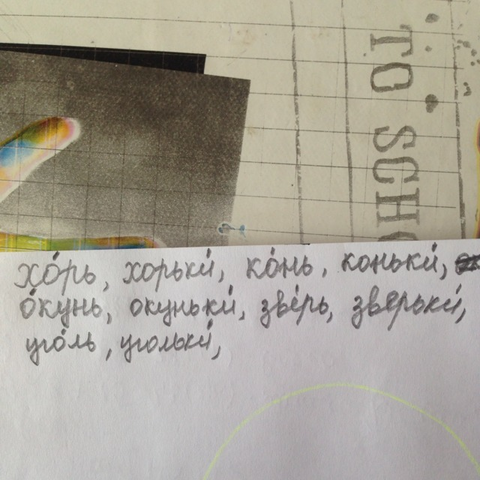 TO SCHO
хо́рь, хорьки́, ко́нь, коньки́,
о́кунь, окуньки́, зве́рь, зверьки́,
у́голь, угольки́,